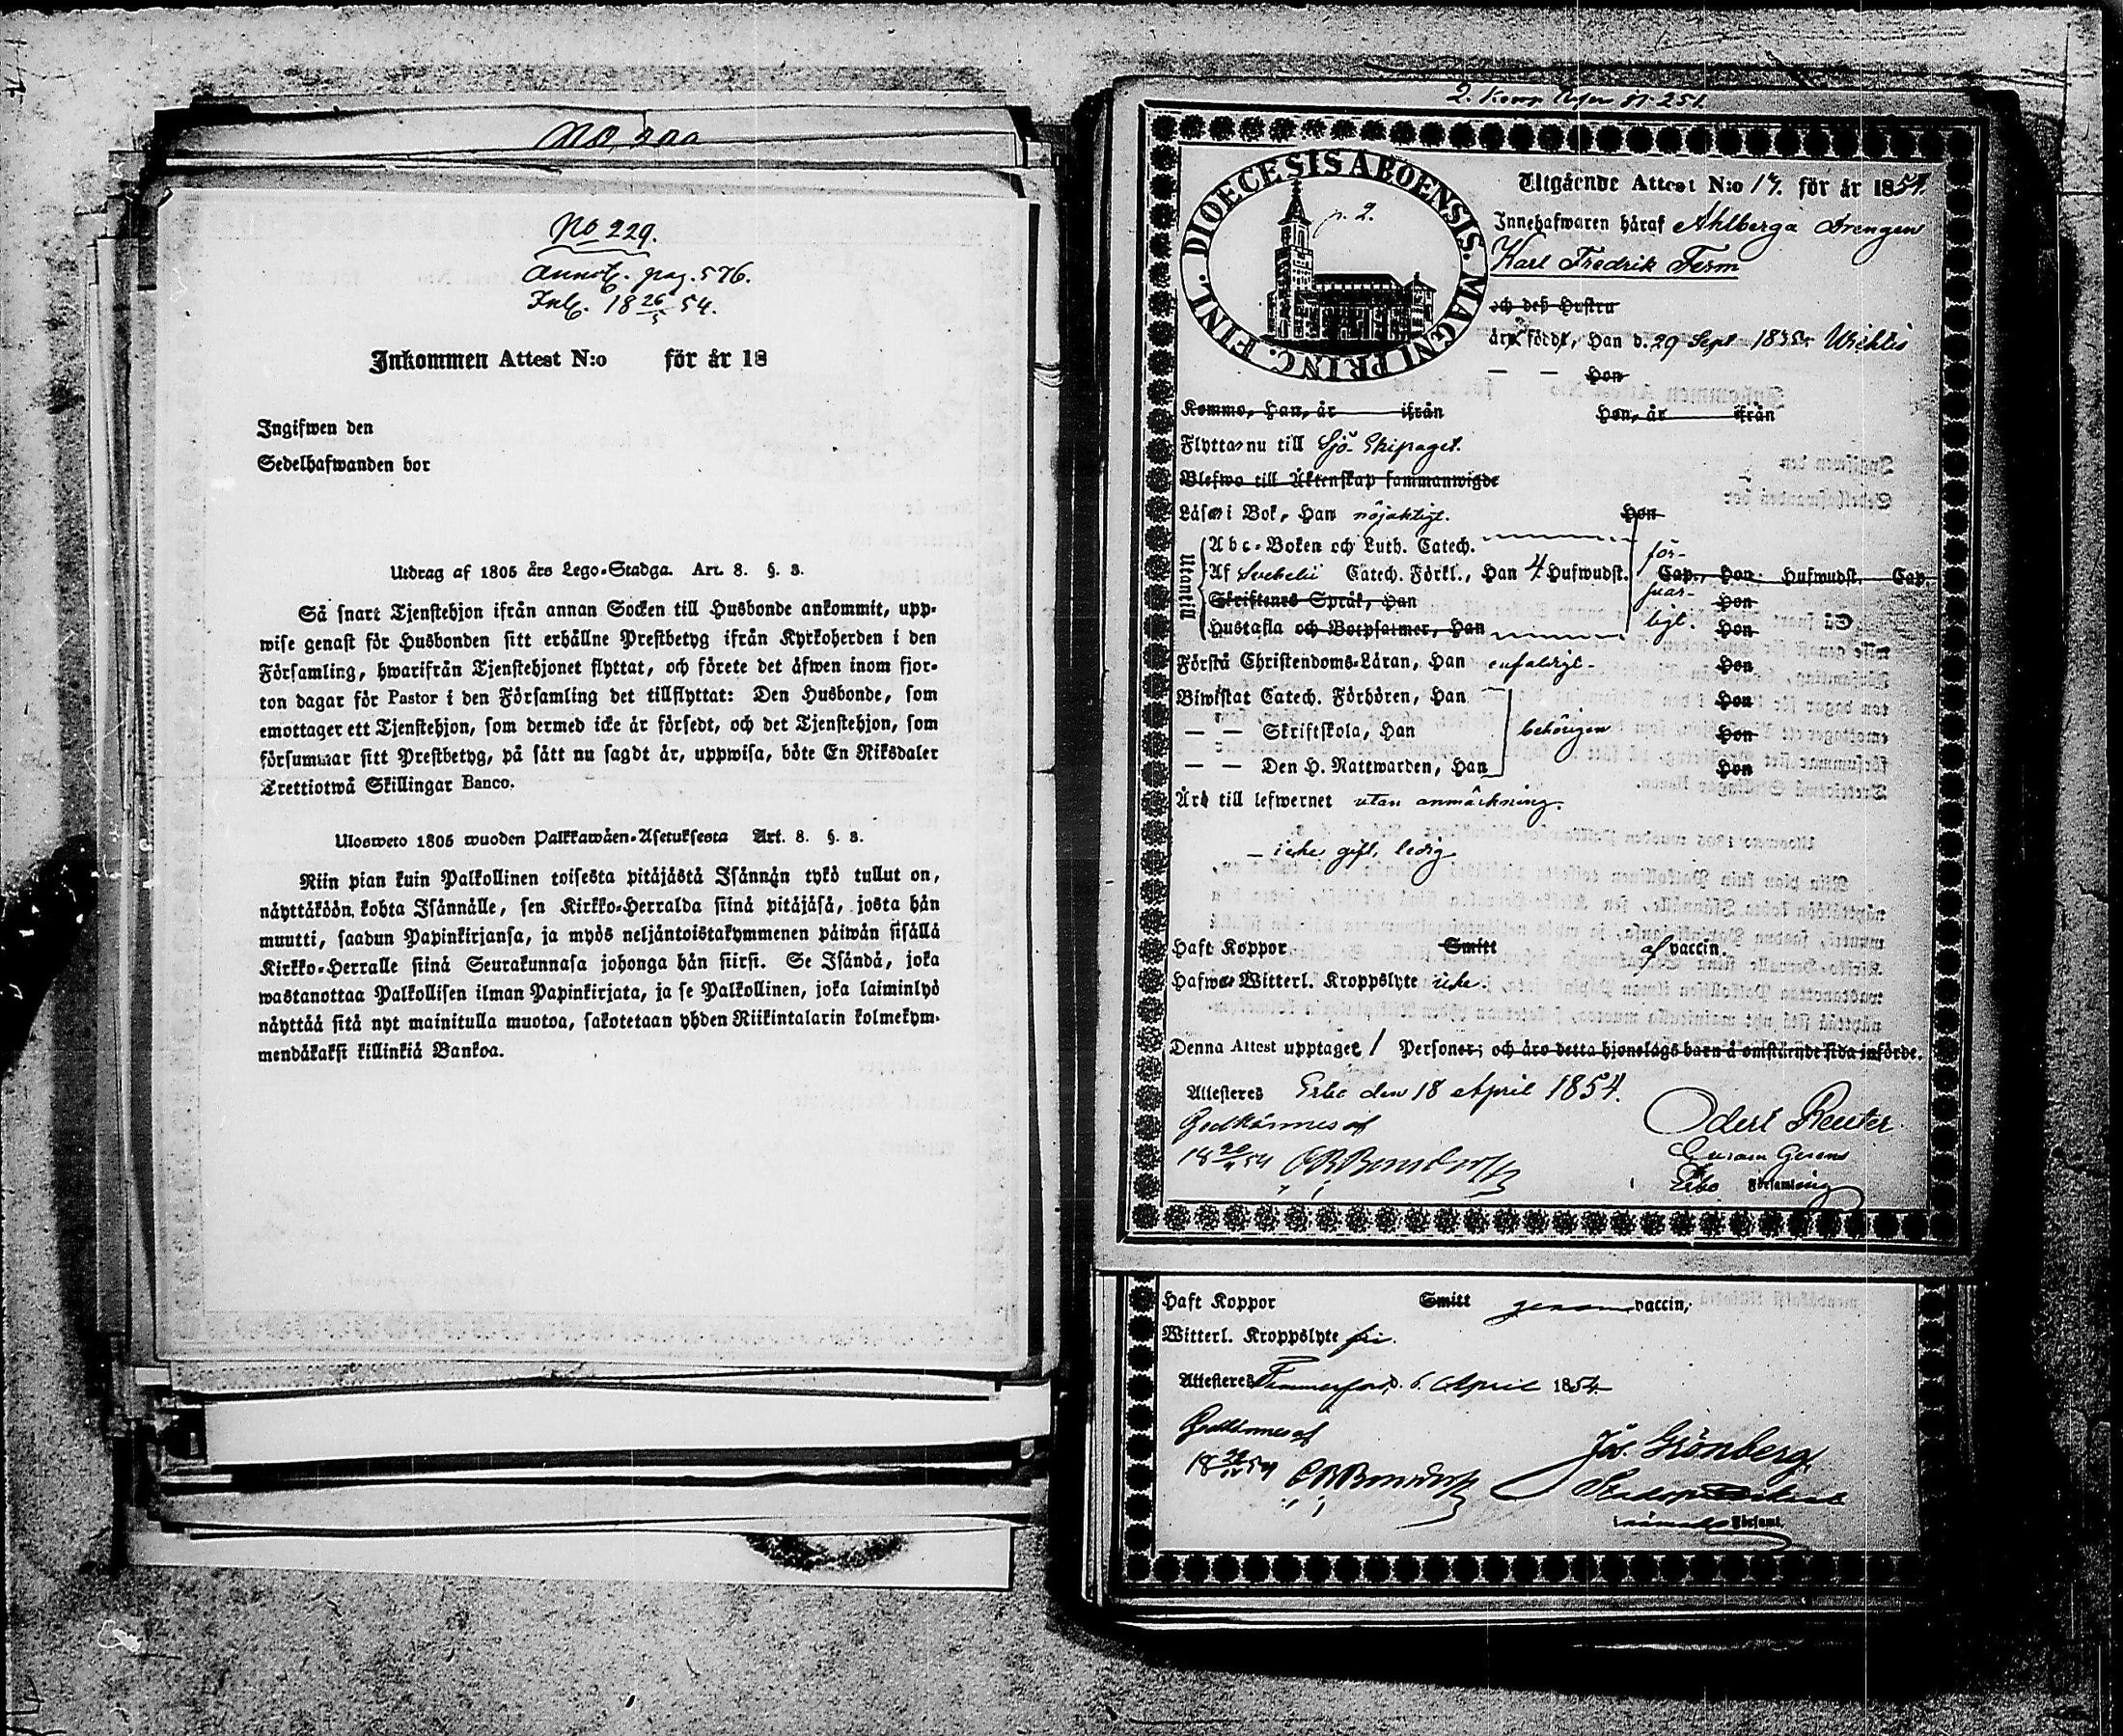 No 229.
Annot. pag. 576.
Inl. 18 26/5 54.
Inkommen Attest N:o för år 18
Ingifwen den
Sedelhafwanden bor
Utdrag af 1805 års Lego-Stadga. Art. 8. §. 3.
Så snart Tjenstehjon ifrån annan Socken till Husbonde ankommit, upp-
wise genast för Husbonden sitt erhållne Prestbetyg ifrån Kyrkoherden i den
Församling, hwarifrån Tjenstehjonet flyttat, och förete det äfwen inom fjor-
ton dagar för Pastor i den Församling det tillflyttat: Den Husbonde, som
emottager ett Tjenstehjon, som dermed icke är försedt, och det Tjenstehjon, som
försummar sitt Prestbetyg, på sätt nu sagdt är, uppwisa, böte En Riksdaler
Trettiotwå Skillingar Banco.
Uloswero 1805 wuoden Palkkawäen-Asetuksesta Art. 8. §. 3.
Niin pian kuin Palkollinen toisesta pitäjästä Isännän tykö tullut on,
näyttäköön kohta Isännälle, sen Kirkko-Herralda siinä pitäjäsä, josta hän
muutti, saadun Papinkirjansa, ja myös neljäntoistakymmenen päiwän sisällä
Kirkko-Herralle siinä Seurakunnasa johonga hän siirsi. Se Isändä, joka
wastanottaa Palkollisen ilman Papinkirjata, ja se Palkollinen, joka laiminlyö
näyttää sitä nyt mainitulla muotoa, sakotetaan yhden Riikintalarin kolmekym-
mendäkaksi killinkiä Bankoa.
2. Komp
DIOECESIS ABOENSIS. MAGNI PRINC. FINL.
p. 2.
Utgående Attest N:o 17. för år 1854.
Innehafwaren häraf Ahlberga Drengen
Karl Fredrik Ferm
och deß Hustru
äro födde, Han d. 29 Sept 1835 Wichtis
— — Hon
Kommo, Han, år ifrån Hon, år ifrån
Flyttar nu till Sjö-Ekipaget.
Blefwo till Äktenskap sammanwigde
Läser i Bok, Han nöjaktigt. Hon
Utantill
Abc-Boken och Luth. Catech.
Af Svebelii Catech. Förkl., Han 4 Hufwudst. Cap., Hon Hufwudst. Cap.
Skriftenes Språk, Han Hon
Hustafla och Botpsalmer, Han Hon
för-
svar-
ligt.
Förstå Christendoms-Läran, Han enfaldigt. Hon
Biwistat Catech. Förhören, Han Hon
— — Skriftskola, Han behörigen Hon
— — Den H. Nattwarden, Han Hon
Äro till lefwernet utan anmärkning.
— icke gift, ledig
Haft Koppor Smitt af vaccin.
Hafwer Witterl. Kroppslyte icke.
Denna Attest upptager 1 Personer; och äro detta hjonelags barn å omstående sida införde.
Attesteres Esbo den 18 April 1854.
Godkännes af
18 20/4 54 CRBonsdorff
Odert Reuter
Curam Gerens
i Esbo Församling
Haft Koppor Smitt genom vaccin,
Witterl. Kroppslyte fri.
Attesteres Tammerfors, d. 6. April 1854
Godkännes af
CRBonsdorff
Joh. Grönberg
Församl.